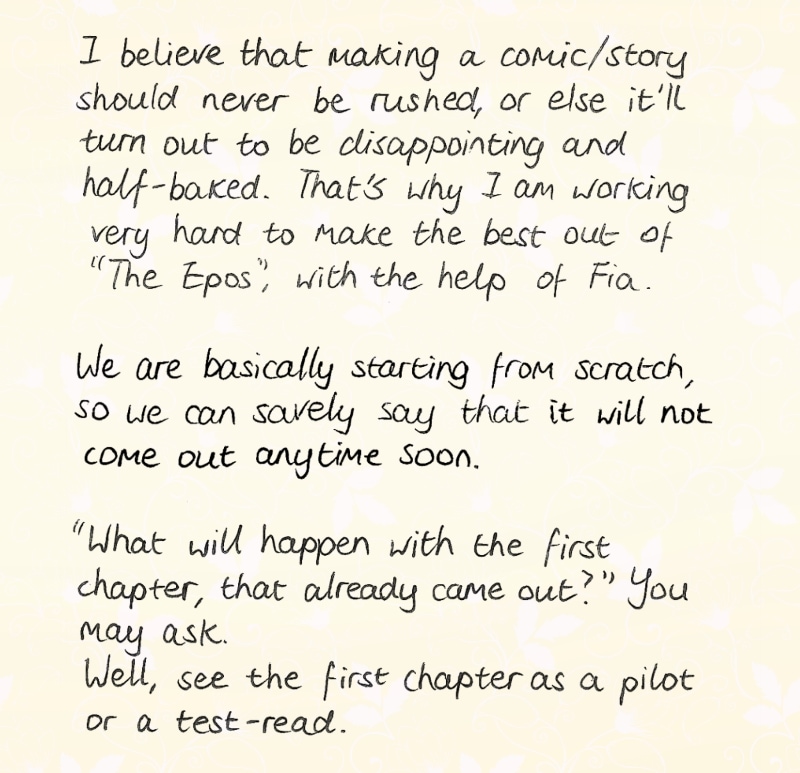 I believe that making a comic/story
should never be rushed, or else it'll
turn out to be disappointing and
half-baked. That's why I am working
very hard to make the best out of
"The Epos", with the help of Fia.
We are basically starting from scratch,
so we can savely say that it will not
come out anytime soon.
"What will happen with the first
chapter, that already came out?" You
may ask.
Well, see the first chapter as a pilot
or a test-read.